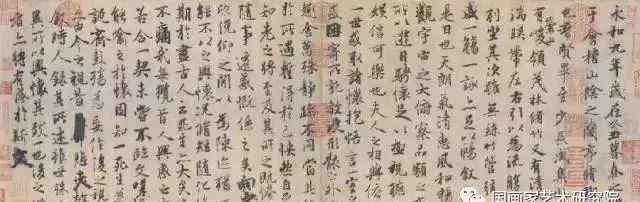 永和九年歲在癸丑暮春
于會稽山陰之蘭亭脩禊
也群賢畢至少長咸集
有崇山峻領茂林脩竹又有清
湍暎帶左右引以為流觴
列坐其次雖無絲竹管弦
盛一觴一詠亦足以暢敘
是日也天朗氣清惠風和暢
觀宇宙之大俯察品類之
所以遊目騁懷足以極視聽
娛信可樂也夫人之相與俯
一世或取諸懷抱悟言一室之
或因寄所託放浪形骸之外
趣舍萬殊靜躁不同當其
於所遇暫得於己快然自足
知老之將至及其所之既
隨事遷感慨係之矣向之
俛仰之間以為陳迹猶
能不以之興懷況脩短隨化
期於盡古人云死生亦大矣
不痛哉每攬昔人興感之
若合一契未嘗不臨文嗟
能喻之於懷固知一死生
誕齊彭殤為妄作後之視
亦由今之視昔悲夫故
敘時人錄其所述雖世殊
異所以興懷其致一也後之
者亦將有感於斯文
国画家艺术研究院